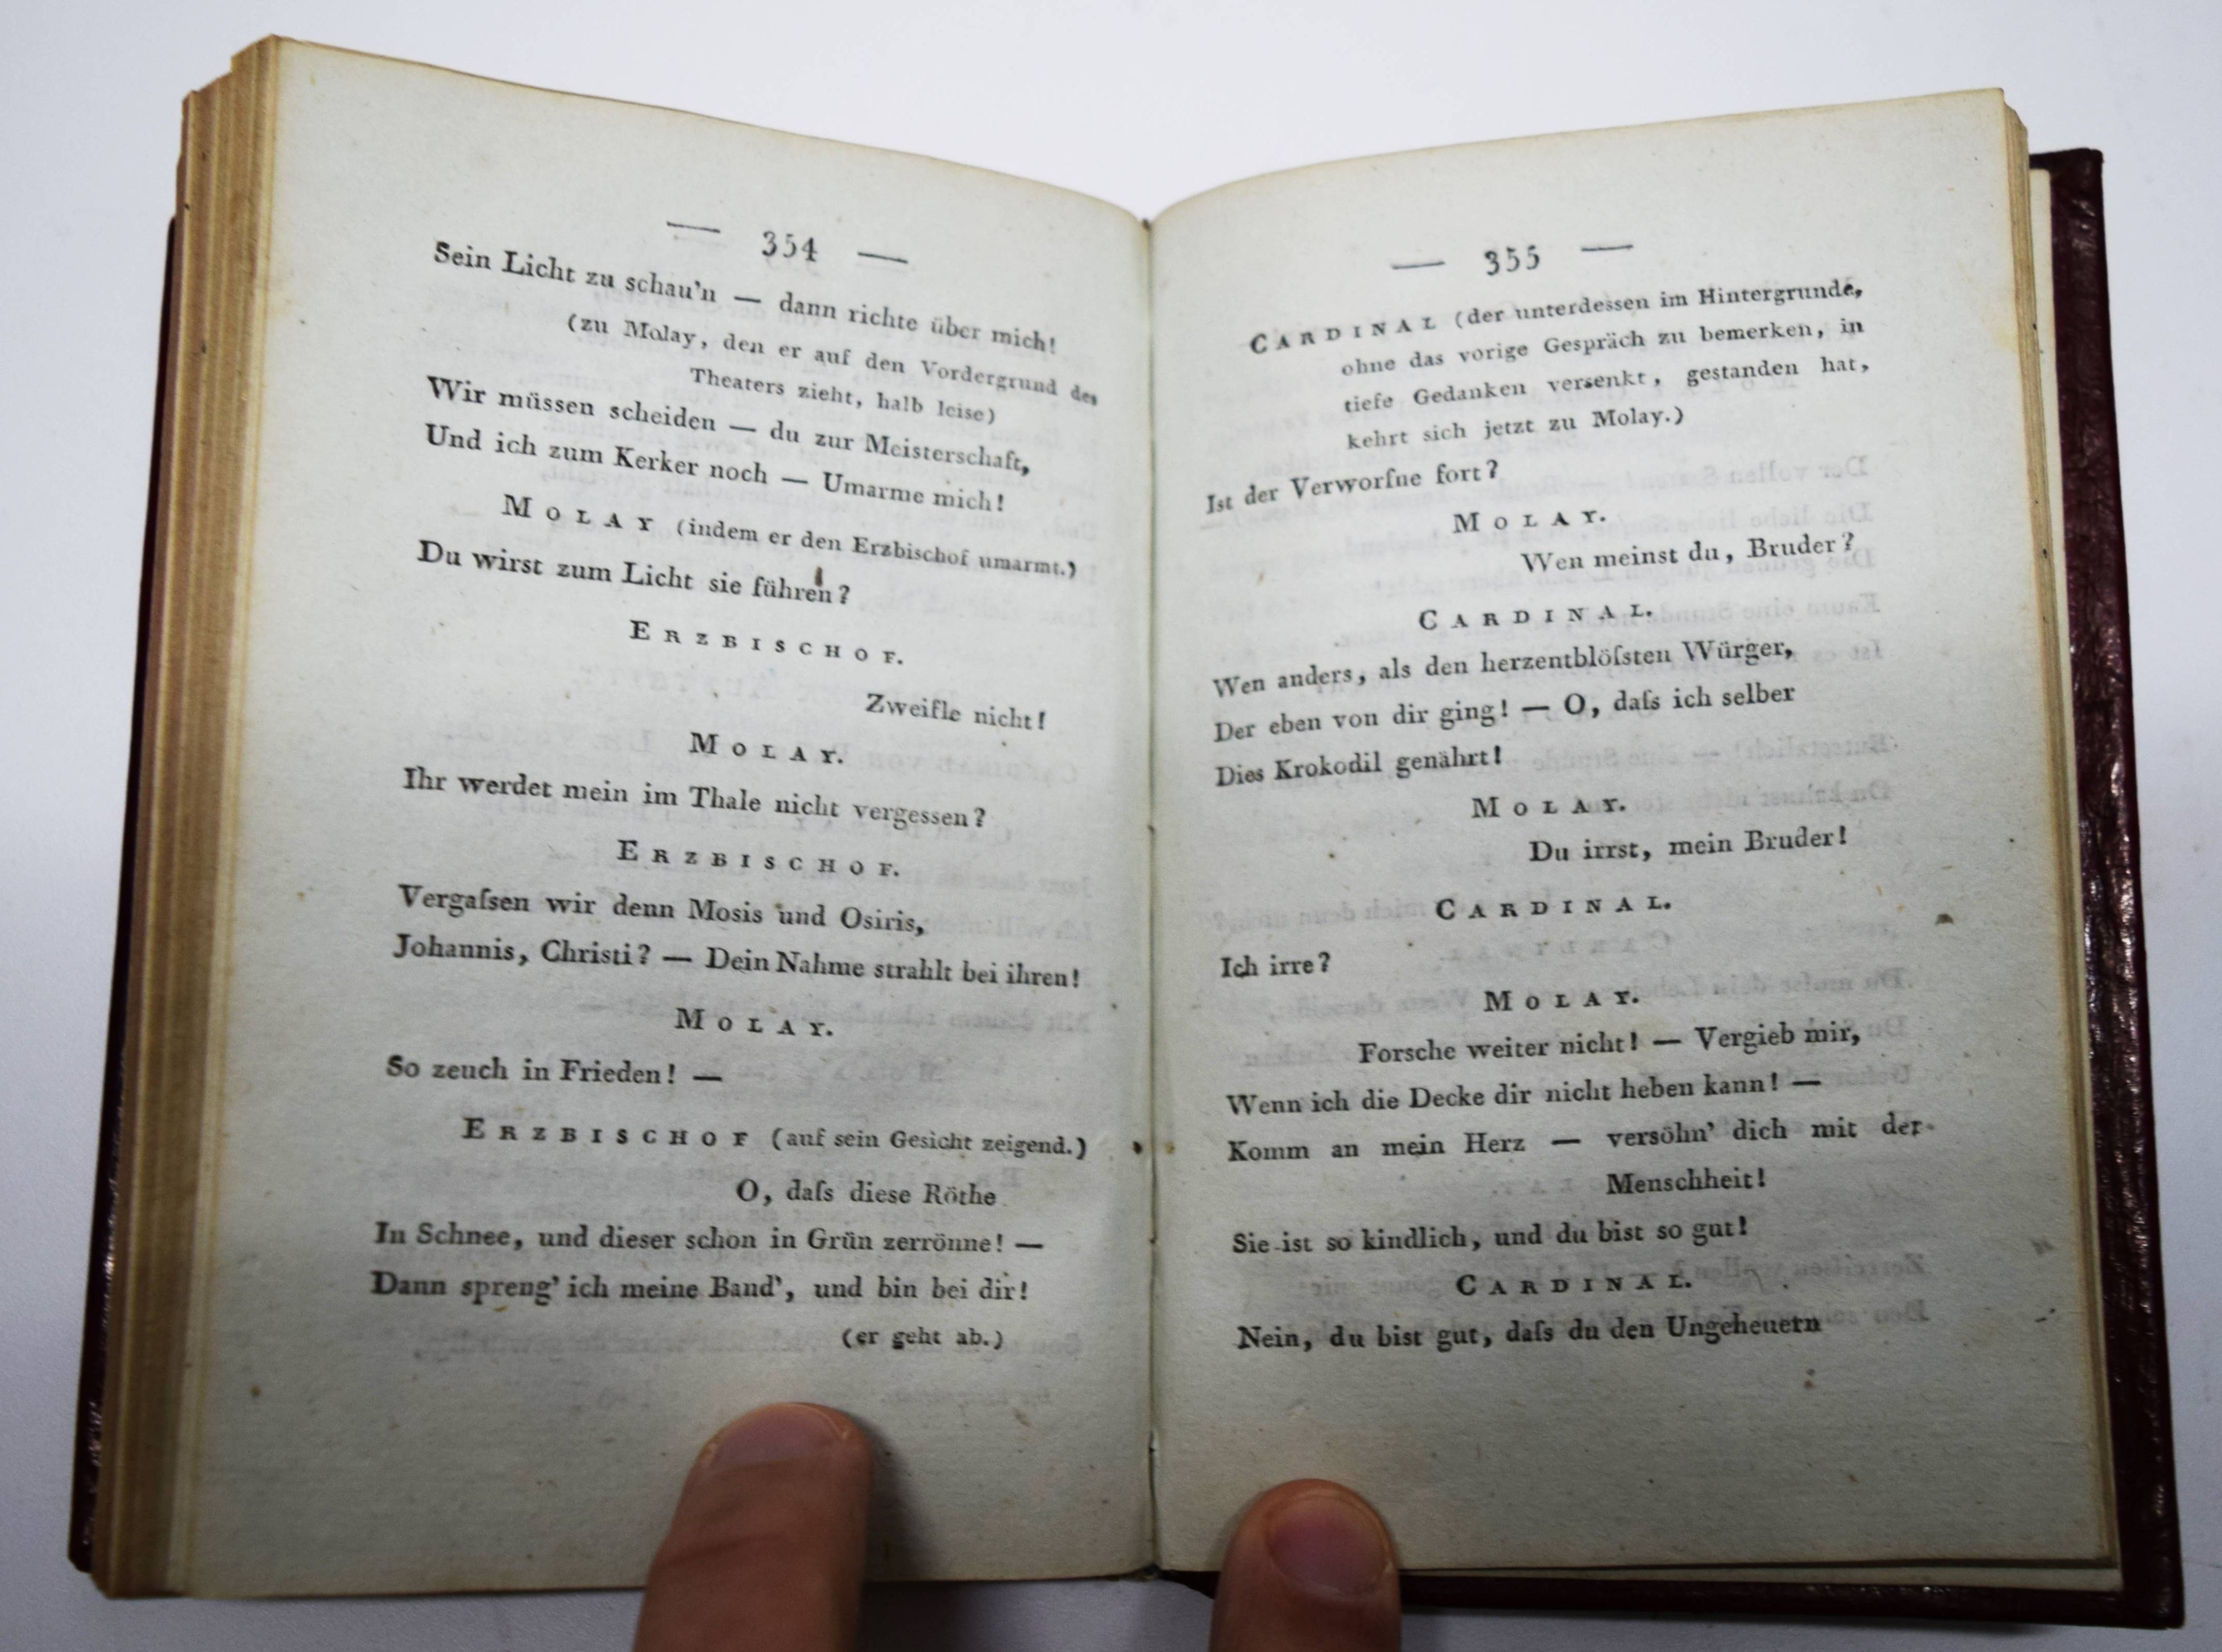 — 354 —
Sein Licht zu schau'n — dann richte über mich!
(zu Molay, den er auf den Vordergrund des
Theaters zieht, halb leise)
Wir müssen scheiden — du zur Meisterschaft,
Und ich zum Kerker noch — Umarme mich!
MOLAY (indem er den Erzbischof umarmt.)
Du wirst zum Licht sie führen?
ERZBISCHOF.
Zweifle nicht!
MOLAY.
Ihr werdet mein im Thale nicht vergessen?
ERZBISCHOF.
Vergaſsen wir denn Mosis und Osiris,
Johannis, Christi? — Dein Nahme strahlt bei ihren!
MOLAY.
So zeuch in Frieden! —
ERZBISCHOF (auf sein Gesicht zeigend.)
O, daſs diese Röthe
In Schnee, und dieser schon in Grün zerrönne! —
Dann spreng' ich meine Band', und bin bei dir!
(er geht ab.)
— 355 —
CARDINAL (der unterdessen im Hintergrunde,
ohne das vorige Gespräch zu bemerken, in
tiefe Gedanken versenkt, gestanden hat,
kehrt sich jetzt zu Molay.)
Ist der Verworfne fort?
MOLAY.
Wen meinst du, Bruder?
CARDINAL.
Wen anders, als den herzentblöſsten Würger,
Der eben von dir ging! — O, daſs ich selber
Dies Krokodil genährt!
MOLAY.
Du irrst, mein Bruder!
CARDINAL.
Ich irre?
MOLAY.
Forsche weiter nicht! — Vergieb mir,
Wenn ich die Decke dir nicht heben kann! —
Komm an mein Herz — versöhn' dich mit der
Menschheit!
Sie ist so kindlich, und du bist so gut!
CARDINAL.
Nein, du bist gut, daſs du den Ungeheuern